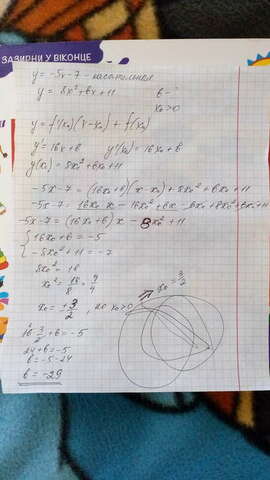 ЗАЗИРНИ У ВІКОНЦЕ
y = -5x - 7 - касательная
y = 8x² + bx + 11    b - ?
x₀ > 0
y = f'(x₀)(x - x₀) + f(x₀)
y' = 16x + b    y'(x₀) = 16x₀ + b
y(x₀) = 8x₀² + bx₀ + 11
-5x - 7 = (16x₀ + b)(x - x₀) + 8x₀² + bx₀ + 11
-5x - 7 = 16x₀x - 16x₀² + bx - bx₀ + 8x₀² + bx₀ + 11
-5x - 7 = (16x₀ + b)x - 8x₀² + 11
{ 16x₀ + b = -5
-8x₀² + 11 = -7
8x₀² = 18
x₀² = 18/8 = 9/4
x₀ = ±3/2, но x₀ > 0 ⇒ x₀ = 3/2
16 · 3/2 + b = -5
24 + b = -5
b = -5 - 24
b = -29